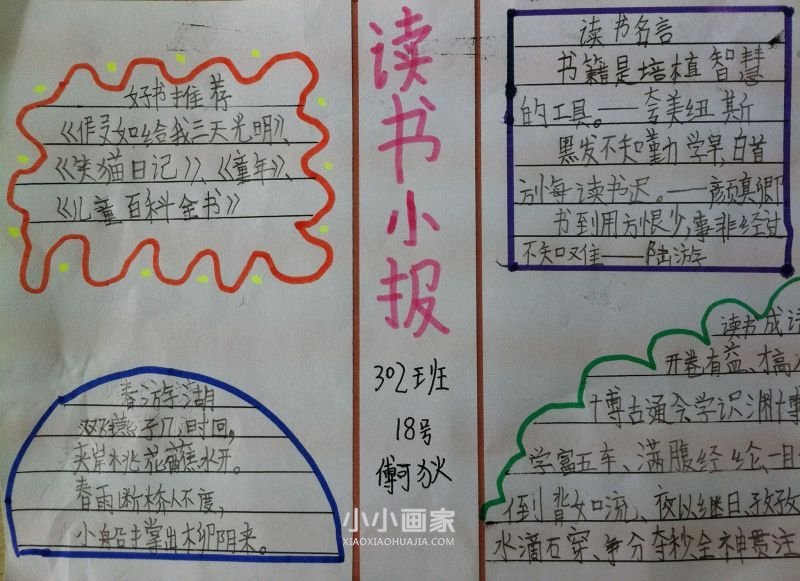 好书推荐
《假如给我三天光明》、
《笑猫日记》、《童年》、
《儿童百科全书》
春游湖
双燕子几时回,
夹岸桃花蘸水开。
春雨断桥人不度,
小船撑出柳阴来。
读书小报
302班
18号
小小画家
XIAOXIAOHUAJIA.COM
读书名言
书籍是培植智慧
的工具。——夸美纽斯
黑发不知勤学早,白首
方悔读书迟。——颜真卿
书到用方恨少,事非经过
不知难——陆游
读书成
开卷有益、才高
博古通今学识渊博
学富五车、满腹经纶、一目
倒背如流、夜以继日、孜孜
水滴石穿、争分夺秒全神贯注